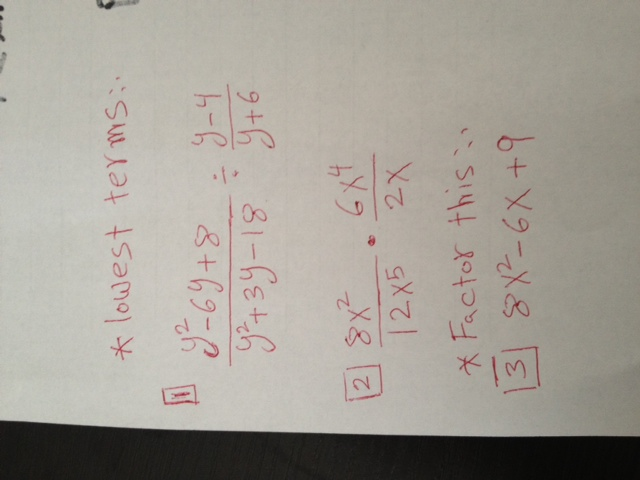 * lowest terms:.
1 y²-6y+8 / y²+3y-18 ÷ y-4 / y+6
2 8x² / 12x⁵ • 6x⁴ / 2x
* Factor this:.
3 8x²-6x+9